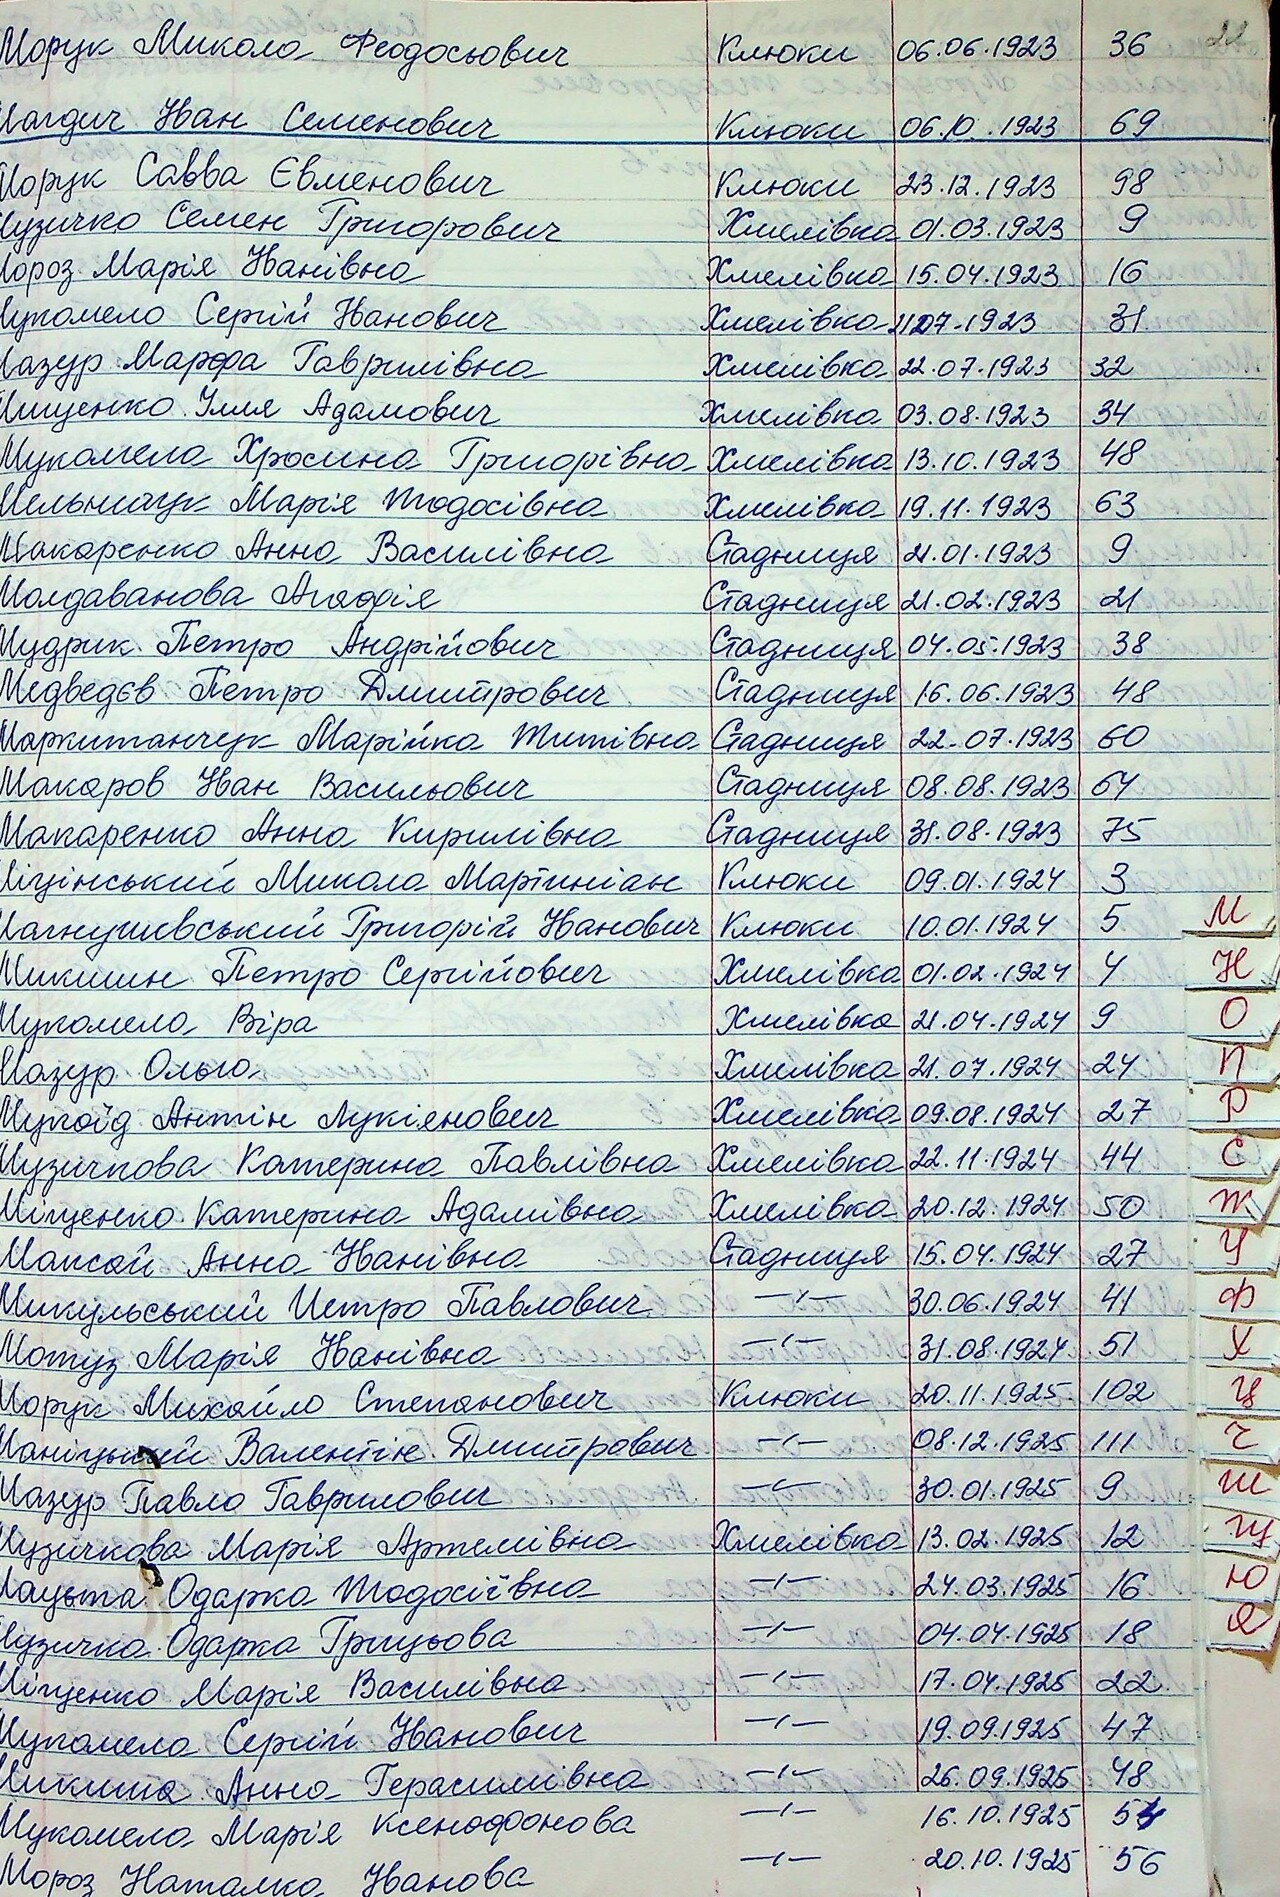 22
Морук Микола Феодосьович Клюки 06.06.1923 36
Магдич Іван Семенович Клюки 06.10.1923 69
Морук Савва Євменович Клюки 23.12.1923 98
Музичко Семен Григорович Хмелівка 01.03.1923 9
Мороз Марія Іванівна Хмелівка 15.04.1923 16
Мукомело Сергій Іванович Хмелівка 07.1923 31
Мазур Марфа Гаврилівна Хмелівка 22.07.1923 32
Мищенко Ілля Адамович Хмелівка 03.08.1923 34
Мукомела Хросина Григорівна Хмелівка 13.10.1923 48
Мельничук Марія Тодосівна Хмелівка 19.11.1923 63
Макаренко Анна Василівна Стадниця 21.01.1923 9
Молдаванова Агафія Стадниця 21.02.1923 21
Мудрик Петро Андрійович Стадниця 04.05.1923 38
Медведєв Петро Дмитрович Стадниця 16.06.1923 48
Маркитанчук Марійка Титівна Стадниця 22.07.1923 60
Макаров Іван Васильович Стадниця 08.08.1923 64
Макаренко Анна Кирилівна Стадниця 31.08.1923 75
Міцінський Микола Мартиніан Клюки 09.01.1924 3
Магнушевський Григорій Іванович Клюки 10.01.1924 5 М
Микишин Петро Сергійович Хмелівка 01.02.1924 4 Н
Мукомела Віра Хмелівка 21.04.1924 9 О
Мазур Ольга Хмелівка 21.07.1924 24 П
Мукоїд Антін Лукіянович Хмелівка 09.08.1924 27 Р
Музичкова Катерина Павлівна Хмелівка 22.11.1924 44 С
Міщенко Катерина Адамівна Хмелівка 20.12.1924 50 Т
Максай Анна Іванівна Стадниця 15.04.1924 27 У
Микульський Петро Павлович —ı— 30.06.1924 41 Ф
Мотуз Марія Іванівна —ı— 31.08.1924 51 Х
Морук Михайло Степанович Клюки 20.11.1925 102 Ц
Маніцький Валентін Дмитрович —ı— 08.12.1925 111 Ч
Мазур Павло Гаврилович —ı— 30.01.1925 9 Ш
Музичкова Марія Артемівна Хмелівка 13.02.1925 12 Щ
Мацьта Одарка Тодосіївна —ı— 24.03.1925 16 Ю
Музичка Одарка Грицьова —ı— 04.04.1925 18 Я
Міщенко Марія Василівна —ı— 17.04.1925 22
Мукомела Сергій Іванович —ı— 19.09.1925 47
Микиша Анна Герасимівна —ı— 26.09.1925 48
Мукомела Марія Ксенофонова —ı— 16.10.1925 54
Мороз Наталка Іванова —ı— 20.10.1925 56